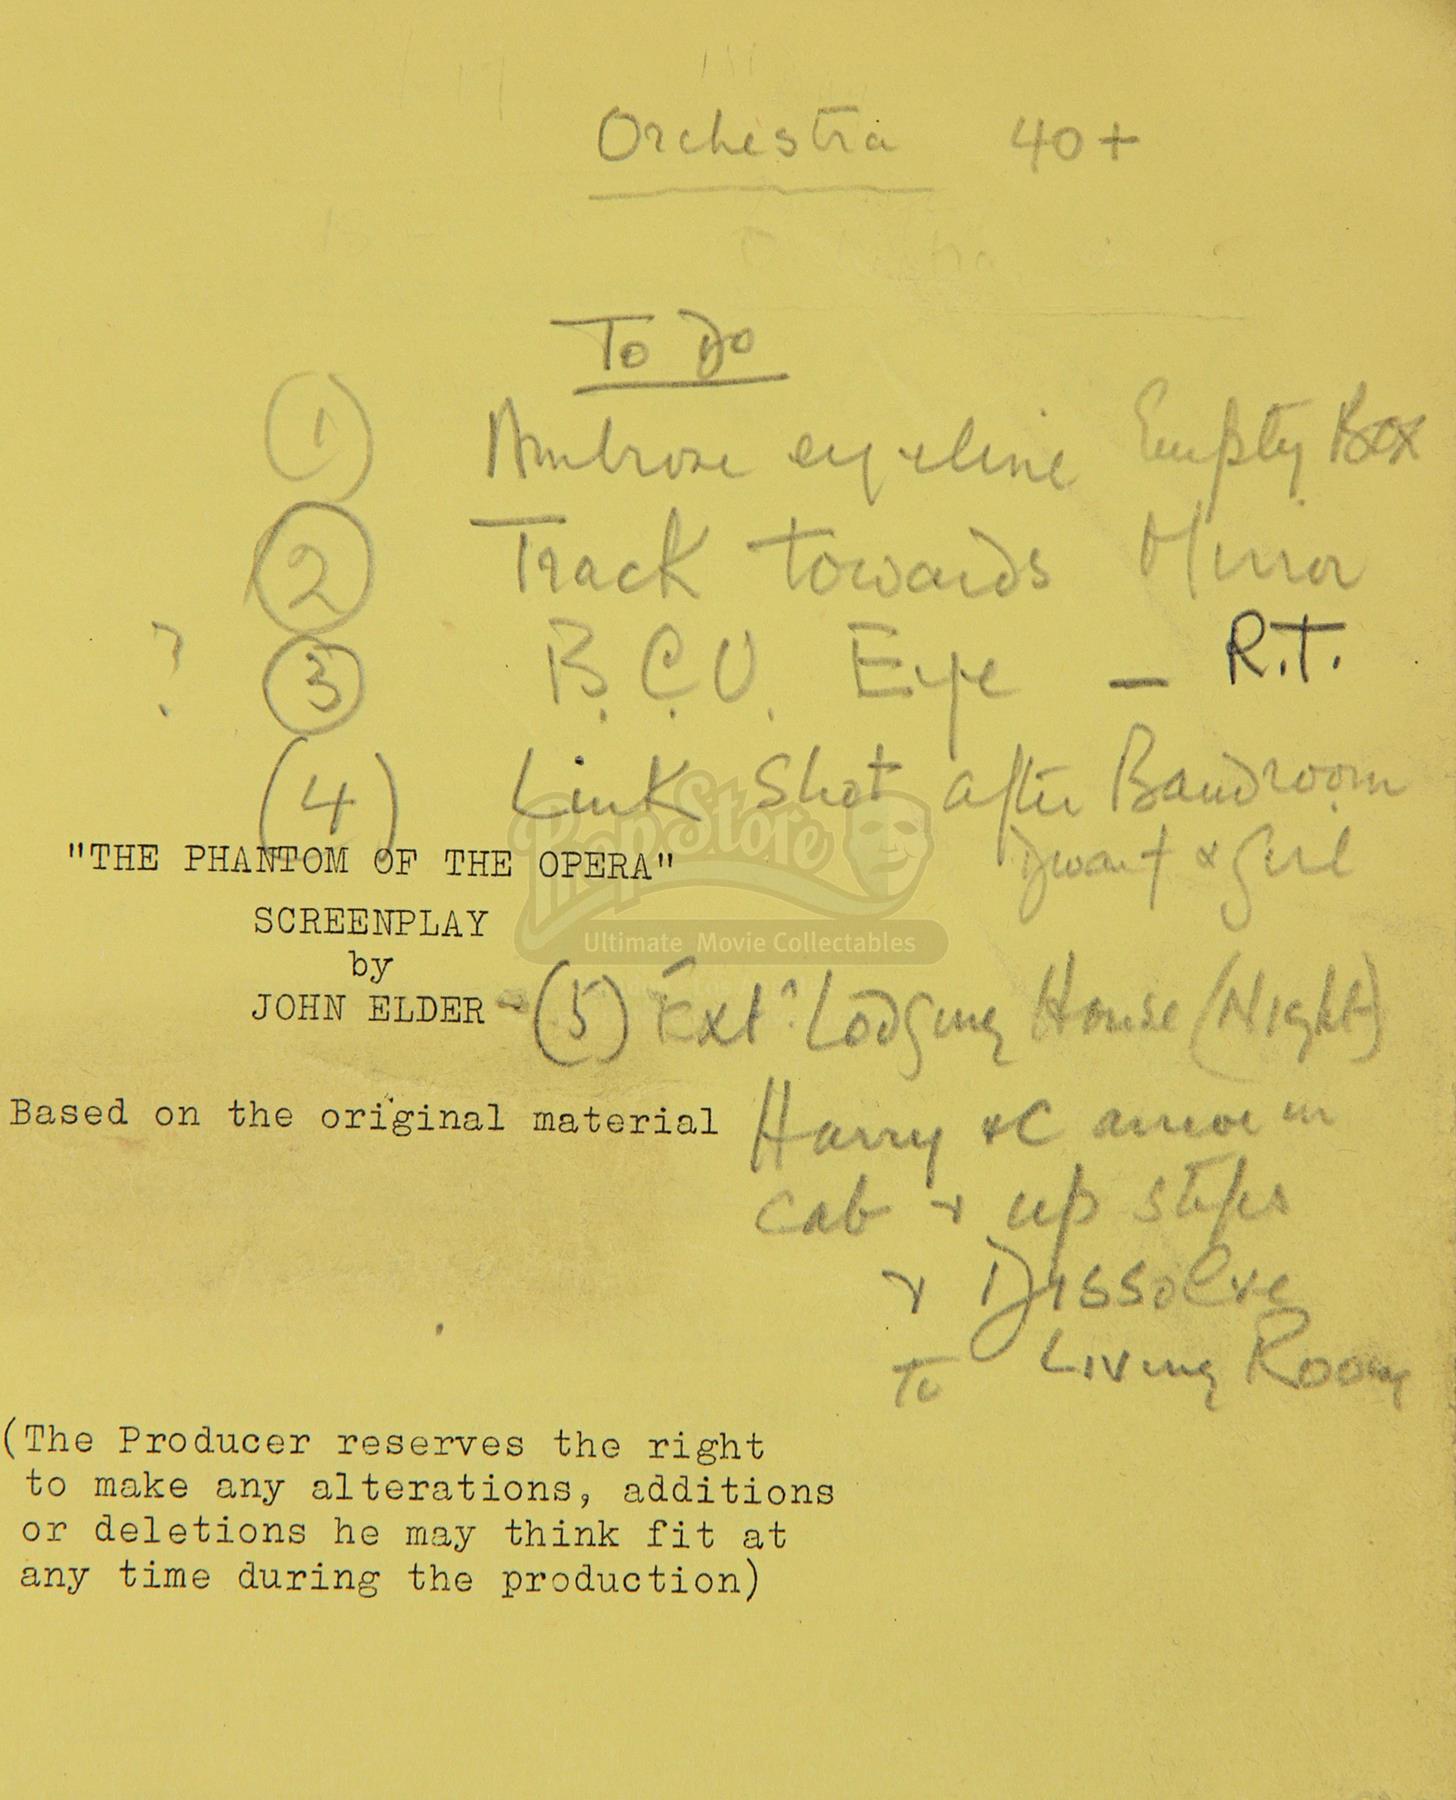 Orchestra 40+
To Do
1 Ambrose eyeline Empty Box
2 Track towards Mirror
? 3 B.C.U. Eye — R.T.
(4) Link Shot after Bandroom
Dwarf & Girl
"THE PHANTOM OF THE OPERA"
SCREENPLAY
by
JOHN ELDER
(5) Ext: Lodging House (Night)
Based on the original material
Harry & C arrive in
cab & up steps
& Dissolve
To Living Room
(The Producer reserves the right
to make any alterations, additions
or deletions he may think fit at
any time during the production)
PropStore
Ultimate Movie Collectables